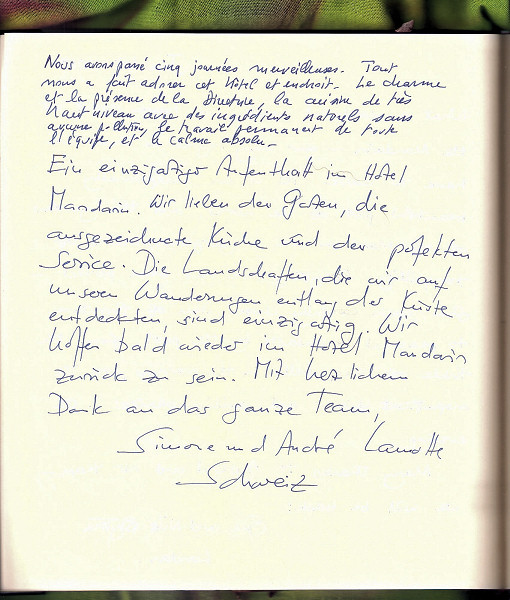 Nous avons passé cinq journées merveilleuses. Tout
nous a fait adorer cet Hôtel et endroit. Le charme
et la présence de la Directrice, la cuisine de très
haut niveau avec des ingrédients naturels sans
aucune pollution, le travail permanent de toute
l'équipe, et le calme absolu.
Ein einzigatiger Aufenthalt im Hotel
Mandarin. Wir lieben den Garten, die
ausgezeichnete Küche und den pefekten
Service. Die Landschaften, die wir auf
unseren Wanderungen entlang der Küste
entdeckten, sind einzigatig. Wir
hoffen bald wieder im Hotel Mandarin
zurück zu sein. Mit hezlichem
Dank an das ganze Team,
Simone und André Lamotte
Schweiz